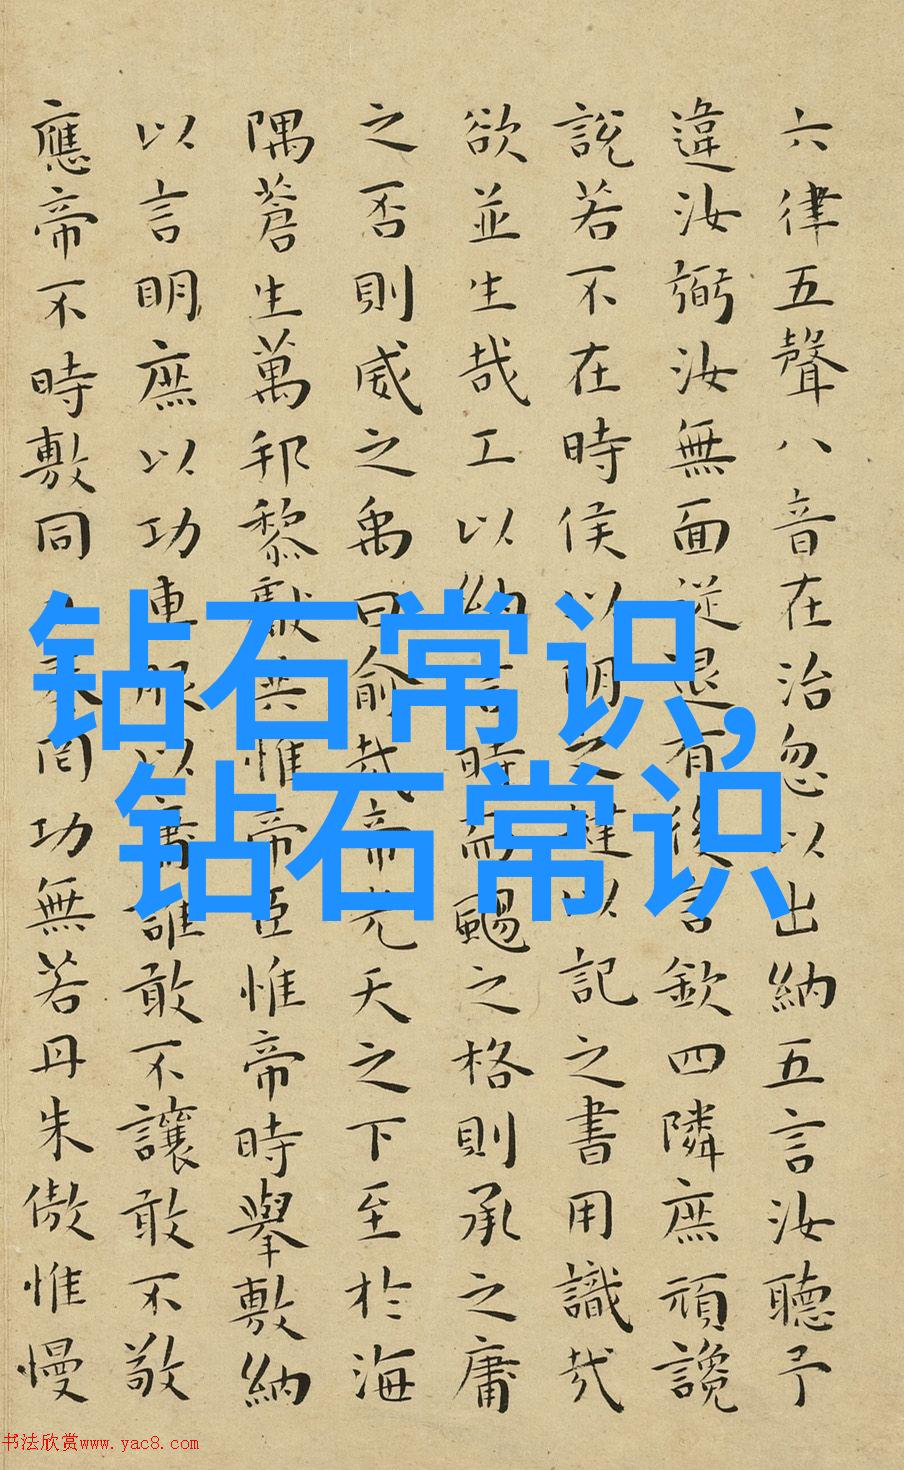 六律五聲八音在治忽以出納五言汝聽予
違汝弼汝無面從退有後言欽四隣庶頑讒
說若不在時侯以明之撻以記之書用識哉
欲並生哉工以納言時而颺之格則承之庸
之否則威之禹曰俞哉帝光天之下至於海
隅蒼生萬邦黎獻共惟帝臣惟帝時舉敷納
以言明庶以功車服以庸誰敢不讓敢不敬
應帝不時敷同日奏罔功無若丹朱傲惟慢
钻石常识,
钻石常识
书法欣赏www.yac8.com